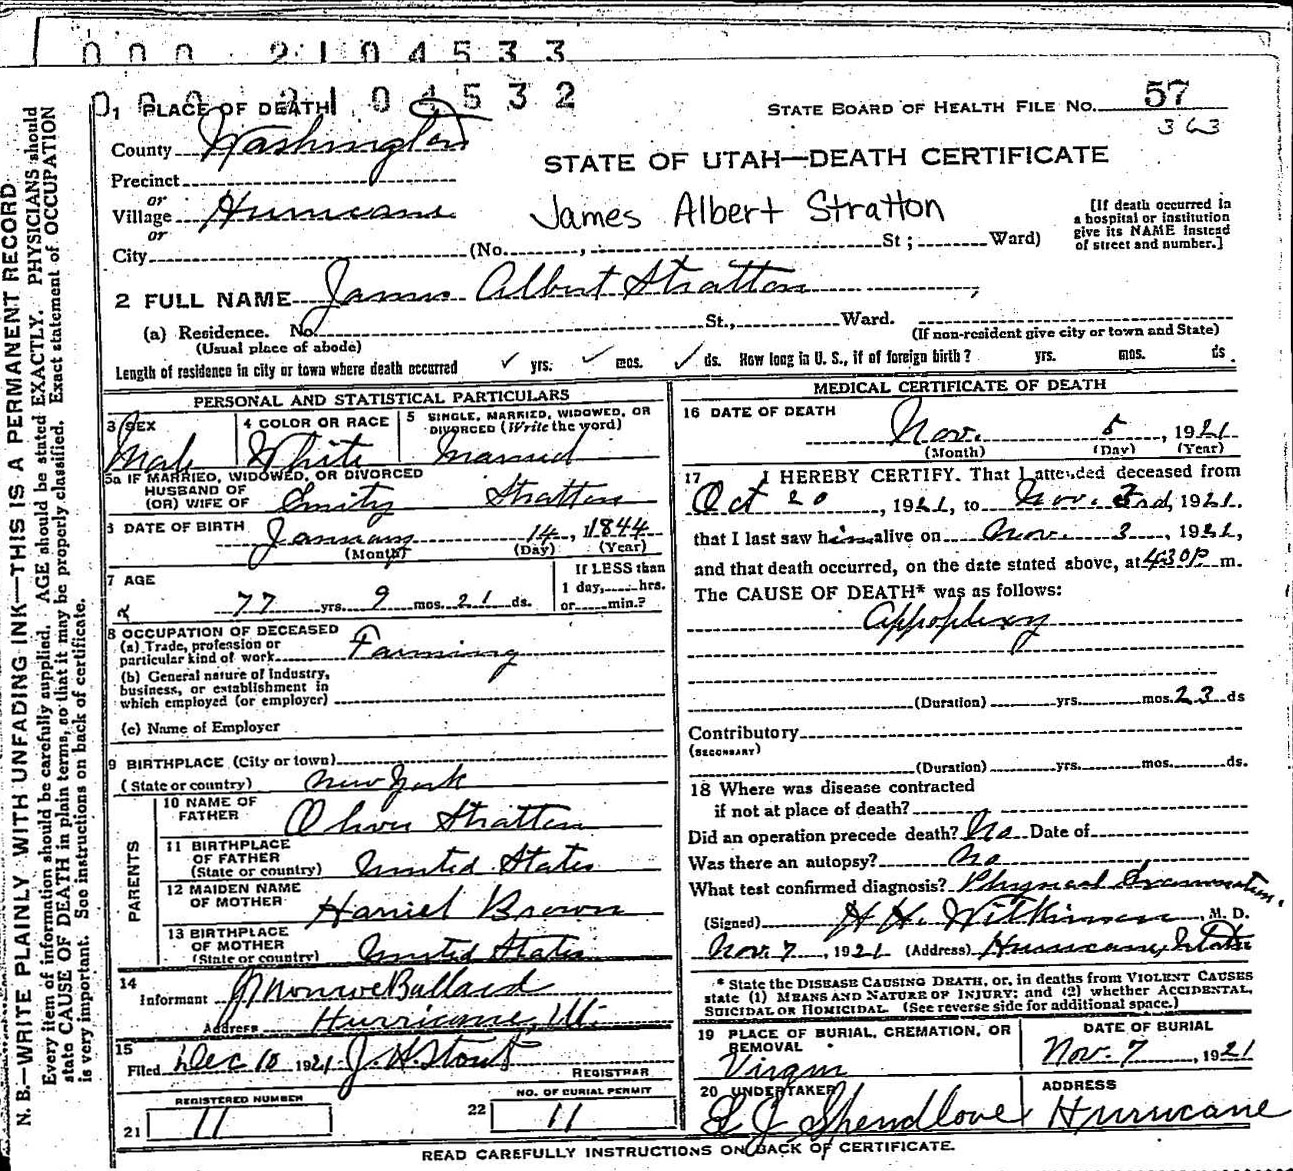 0 0 0 2 1 0 4 5 3 3
0 0 0 2 1 0 4 5 3 2
1 PLACE OF DEATH
STATE BOARD OF HEALTH FILE No. 57
363
County Washington
STATE OF UTAH—DEATH CERTIFICATE
Precinct
or
Village Hurricane
James Albert Stratton
[If death occurred in
a hospital or institution
give its NAME instead
of street and number.]
or
City (No. , St ; Ward)
2 FULL NAME James Albert Stratton
(a) Residence. No. St., Ward.
(Usual place of abode) (If non-resident give city or town and State)
Length of residence in city or town where death occurred ✓ yrs. ✓ mos. ✓ ds. How long in U. S., if of foreign birth? yrs. mos. ds.
PERSONAL AND STATISTICAL PARTICULARS
3 SEX 4 COLOR OR RACE 5 SINGLE, MARRIED, WIDOWED, OR
DIVORCED (Write the word)
Male White Married
5a IF MARRIED, WIDOWED, OR DIVORCED
HUSBAND OF
(OR) WIFE OF Emity Stratton
6 DATE OF BIRTH January 14, 1844
(Month) (Day) (Year)
7 AGE If LESS than
1 day, hrs.
77 yrs. 9 mos. 21 ds. or min.?
8 OCCUPATION OF DECEASED
(a) Trade, profession or
particular kind of work Farming
(b) General nature of Industry,
business, or establishment in
which employed (or employer)
(c) Name of Employer
9 BIRTHPLACE (City or town)
(State or country) New York
PARENTS
10 NAME OF
FATHER Oliver Stratton
11 BIRTHPLACE
OF FATHER
(State or country) United States
12 MAIDEN NAME
OF MOTHER Harriet Brown
13 BIRTHPLACE
OF MOTHER
(State or country) United States
14
Informant J Monroe Ballard
Address Hurricane, Ut.
15
Filed Dec 10 1921 J. H. Stout
REGISTRAR
REGISTERED NUMBER NO. OF BURIAL PERMIT
21 11 22 11
MEDICAL CERTIFICATE OF DEATH
16 DATE OF DEATH
Nov. 5, 1921
(Month) (Day) (Year)
17 I HEREBY CERTIFY. That I attended deceased from
Oct 20, 1921, to Nov. 3rd, 1921.
that I last saw him alive on Nov. 3, 1921,
and that death occurred, on the date stated above, at 430P m.
The CAUSE OF DEATH* was as follows:
Appoplexy
(Duration) yrs. mos. 23 ds
Contributory
(SECONDARY)
(Duration) yrs. mos. ds.
18 Where was disease contracted
if not at place of death?
Did an operation precede death? No Date of
Was there an autopsy? No
What test confirmed diagnosis? Physical Examination.
(Signed) H H. Wilkinson, M. D.
Nov. 7, 1921 (Address) Hurricane, Utah
* State the DISEASE CAUSING DEATH, or, in deaths from VIOLENT CAUSES
state (1) MEANS AND NATURE OF INJURY; and (2) whether ACCIDENTAL,
SUICIDAL OR HOMICIDAL. (See reverse side for additional space.)
19 PLACE OF BURIAL, CREMATION, OR
REMOVAL
Virgin
DATE OF BURIAL
Nov. 7, 1921
20 UNDERTAKER
Spendlove
ADDRESS
Hurricane
READ CAREFULLY INSTRUCTIONS ON BACK OF CERTIFICATE.
N. B.—WRITE PLAINLY WITH UNFADING INK—THIS IS A PERMANENT RECORD
Every item of information should be carefully supplied. AGE should be stated EXACTLY. PHYSICIANS should
state CAUSE OF DEATH in plain terms, so that it may be properly classified. Exact statement of OCCUPATION
is very important. See instructions on back of certificate.